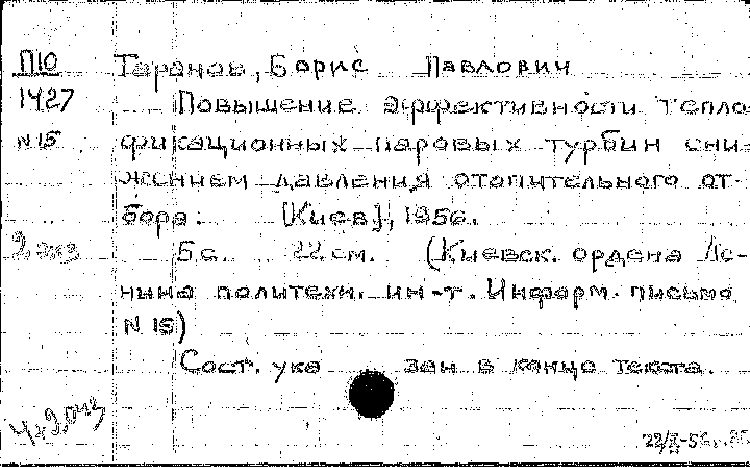 П10 Таранов, Борис Павлович
1427 Повышение эффективности тепло-
N 15 фикационных паровых турбин сни-
жением давления отопительного от-
бора. [Киев], 1956.
2 экз 5 с. 22 см. (Киевск. ордена Ле-
нина политехн. ин-т. Информ. письмо
N 15)
Сост. указан в конце текста.